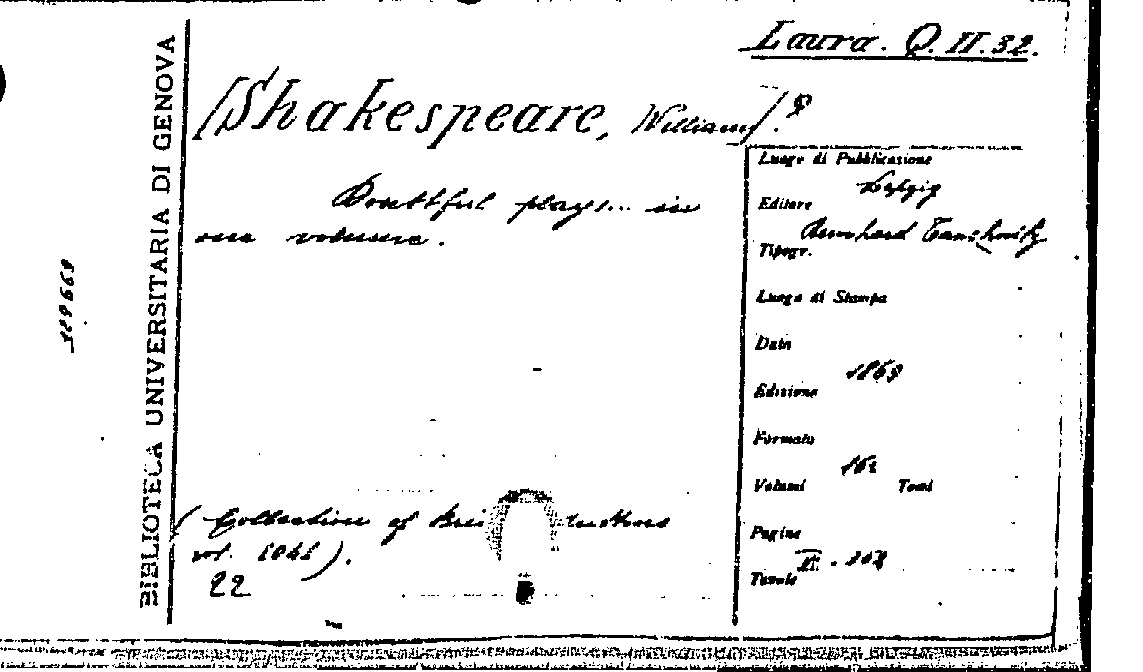 Laura. Q. II. 32.
[Shakespeare, William].?
Doubtful plays... in
one volume.
Luogo di Pubblicazione
Leipzig
Editore
Bernhard Tauchnitz
Tipogr.
Luogo di Stampa
Data
1869
Edizione
Formato
16º
Volumi Tomi
Pagine
Tavole
(Collection of
vol. 1041).
22
BIBLIOTECA UNIVERSITARIA DI GENOVA